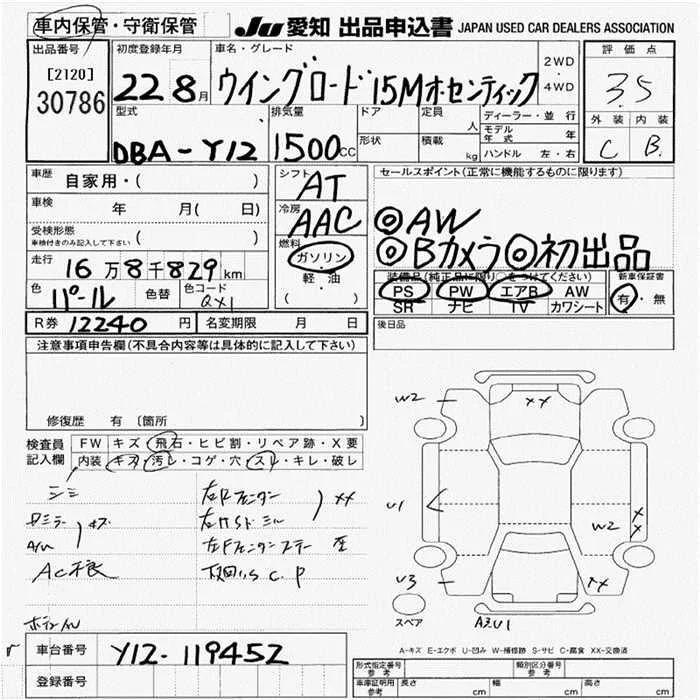 車内保管・守衛保管 JU 愛知 出品申込書 JAPAN USED CAR DEALERS ASSOCIATION
出品番号 初度登録年月 車名・グレード 2WD・4WD 評価点
[2120] 22 8月 ウイングロード 15Mオーセンティック 3.5
30786
型式 排気量 ドア 定員 人 ディーラー・並行 外装 内装
DBA-Y12 1500cc 形状 積載 kg モデル年式 年 C B.
ハンドル 左・右
車歴 自家用・( ) シフト AT セールスポイント(正常に機能するものに限ります)
車検 年 月( 日) 冷房 AAC ◎AW
受検形態 車検付きのみ記入して下さい ( ) 燃料 ガソリン ◎Bカメラ ◎初出品
走行 16万8千829km 軽・油 装備品(純正品に限り○をつけてください) 新車保証書
色 パール 色替 色コード QX1 ( ・ ) PS PW エアB AW 有・無
SR ナビ TV カワシート
R券 12240円 名変期限 月 日 後日品
注意事項申告欄(不具合内容等は具体的に記入して下さい)
修復歴 有 〔箇所 〕
検査員 FW キズ・飛石・ヒビ割・リペア跡・X要
記入欄 内装 キズ・汚レ・コゲ・穴・スレ・キレ・破レ
シミ
キズ
A/W
AC不良
XX
W2
XX
U1
W2
X
X
U3
XX
スペア AXU1
A-キズ E-エクボ U-凹み W-補修跡 S-サビ C-腐食 XX-交換済
車台番号 Y12-119452
登録番号
形式指定番号 参考 類別区分番号 参考
車庫証明用 参考 長さ cm 幅 cm 高さ cm